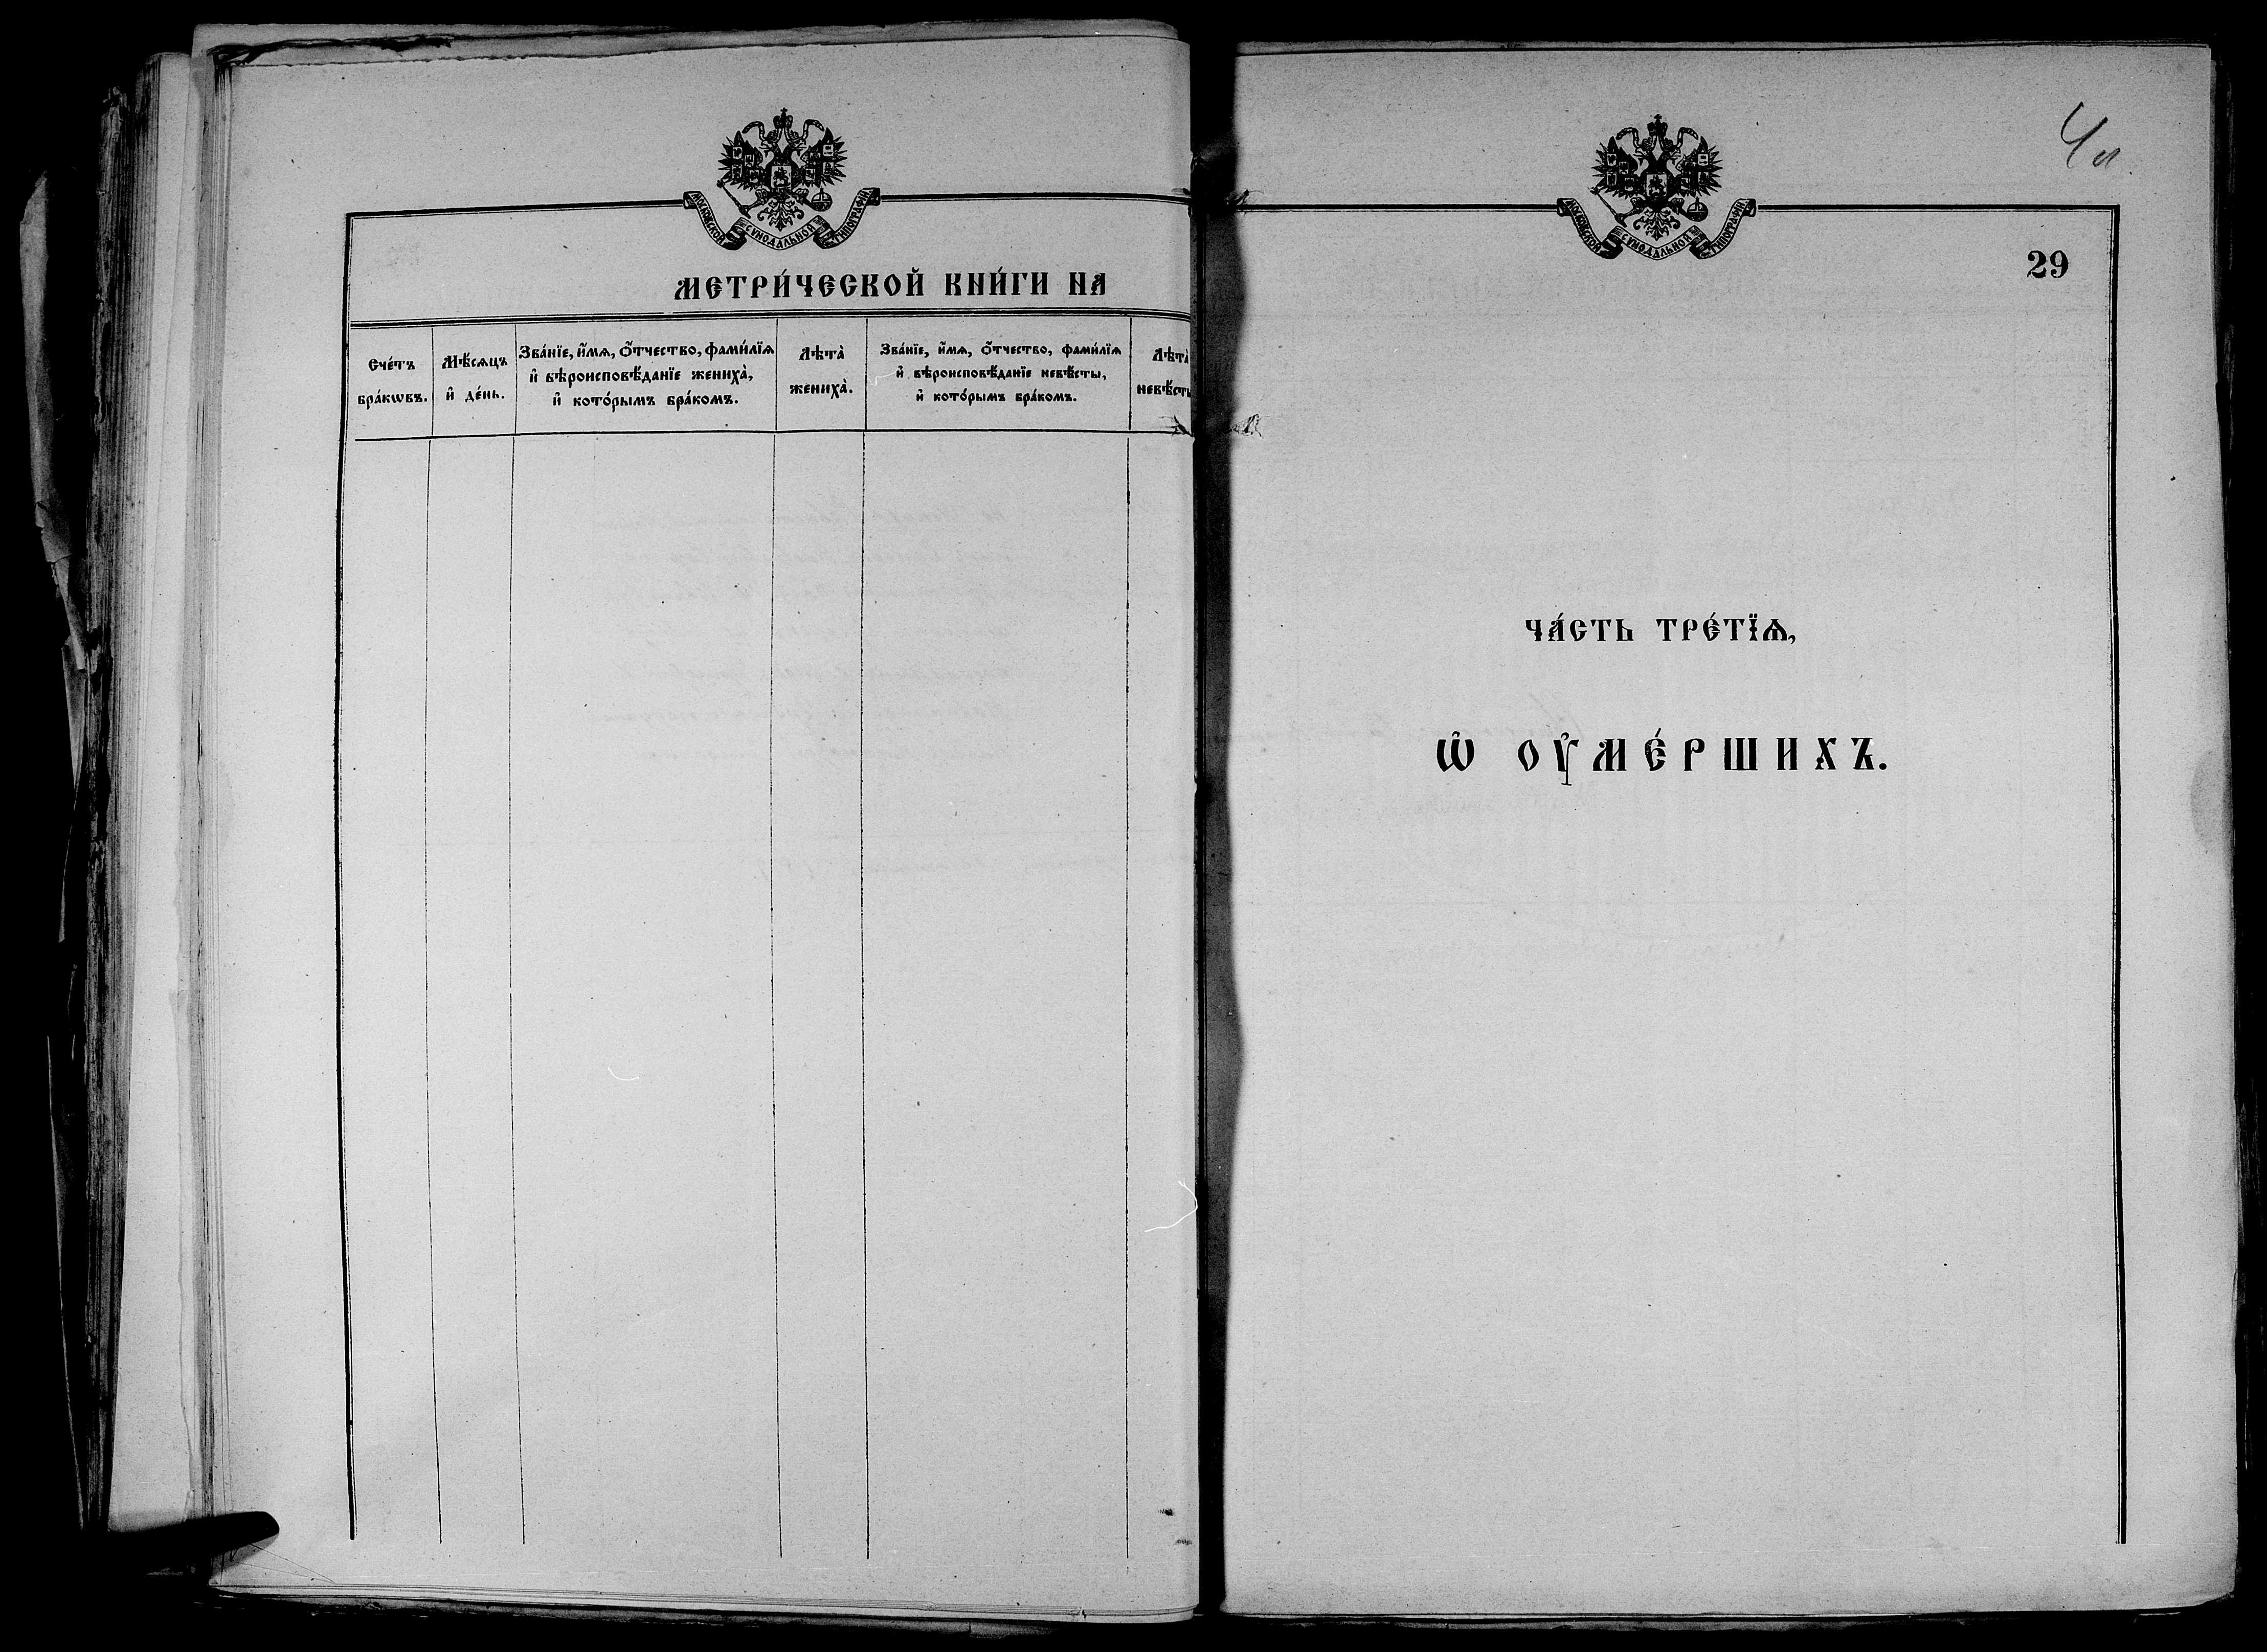 МОСКОВСКОЙ СѴНОДАЛЬНОЙ ТИПОГРАФІИ
МЕТРИ́ЧЕСКОЙ КНИ́ГИ НА
Сче́тъ
бра́кѡвъ.
Мѣ́сѧцъ
и҆ де́нь.
Зва́нїе, и҆́мѧ, ѻ҆́тчество, фами́лїѧ
и҆ вѣроисповѣ́данїе жениха̀,
и҆ кото́рымъ бра́комъ.
Лѣта̀
жениха̀.
Зва́нїе, и҆́мѧ, ѻ҆́тчество, фами́лїѧ
и҆ вѣроисповѣ́данїе невѣ́сты,
и҆ кото́рымъ бра́комъ.
Лѣта̀
невѣ́сты
МОСКОВСКОЙ СѴНОДАЛЬНОЙ ТИПОГРАФІИ
29
ЧА́СТЬ ТРЕ́ТЇѦ,
Ѡ҆ ОУ҆МЕ́РШИХЪ.